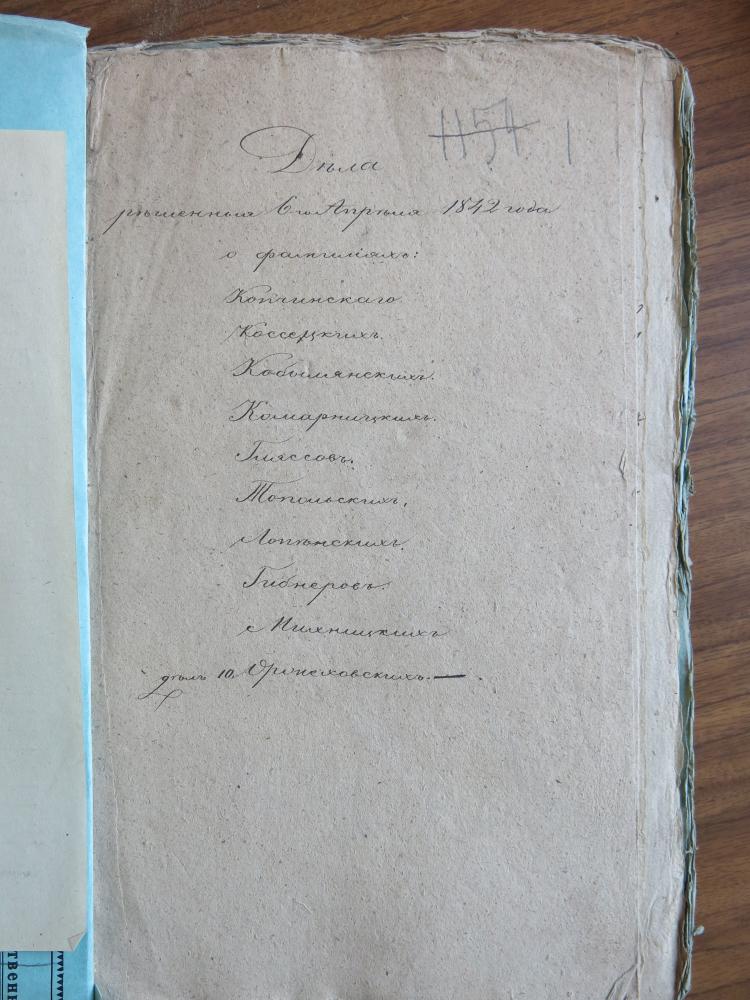 1154 1
Дѣла
рѣшенныя 6го Апрѣля 1842 года
о фамиліяхъ:
Копчинскаго
Коссецкихъ.
Кобылянскихъ.
Комарницкихъ.
Гляссовъ.
Топольскихъ,
Лопѣнскихъ.
Гибнеровъ.
дѣлъ 10.
твенн